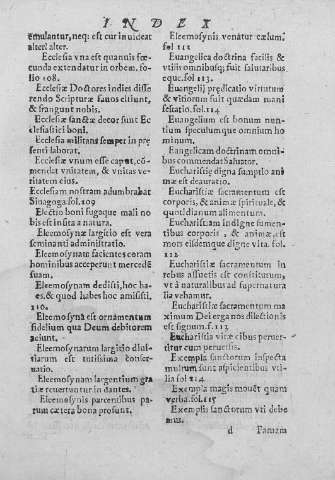 INDEX
emulantur, neq; est cur invideat
alter alter.
Ecclesia vna est quanuis fœ-
cunda extendatur in orbem. fo-
lio 108.
Ecclesiæ Doctores indies disse
rendo Scripturæ sanos eliiunt,
& frangunt nobis.
Ecclesiæ sanctæ decor sunt Ec
clesiastici boni.
Ecclesia militans semper in prę
senti laborat.
Ecclesiæ vnum esse caput, cō-
mendat vnitatem, & vnitas ve-
ritatem eius.
Ecclesiam nostram adumbrabat
Sinagoga fol. 109
Electio boni fugaque mali no
bis est insita a natura.
Eleemosynæ largitio est vera
seminanti administratio.
Eleemosynam facientes coram
hominibus acceperunt mercedē
suam.
Eleemosynam dedisti, hoc ha-
bes, & quod habes hoc amisisti,
110.
Eleemosyna est ornamentum
fidelium qua Deum debitorem
aciunt.
Eleemosynarum largitio diui-
tiarum est tutissima conser-
uatio.
Eleemosynam largentium gra
tiæ reuertuntur in dantes.
Eleemosynis parcentibus pa-
rum cætera bona prosunt.
Eleemosynis venatur cælum,
fol 112
Euangelica doctrina facilis &
vtilis omnibusq; suit salutaribus
eque. fol 113.
Euangelij prędicatio virtutum
& vitiorum suit quædam mani
festatio. fol. 114
Euangelium est bonum nun-
tium speculumque omnium ho
minum.
Euangelicam doctrinam omni-
bus commendat Saluator.
Eucharistiæ digna sumptio ani
mæ est deauratio.
Eucharistiæ sacramentum est
corporis, & animæ spirituale, &
quotidianum alimentum.
Eucharistiam indigne sumen-
tibus corporis, & animæ, est
mors eisdemque digne vita. fol.
112
Eucharistiæ sacramentum in
rebus assuetis est constitutum,
vt à naturalibus ad supernatura
lia vehamur.
Eucharistiæ sacramentum ma
ximum Dei erga nos dilectionis
est signum. f. 113
Eucharistia vitæ cibus peruer-
titur cum peruersis.
Exempla sanctorum inspecta
multum sunt aspicientibus vti-
lia fol 214.
Exempla magis mouēt quam
verba. fol. 115
Exemplis sanctorum vti debe
mus.
d Famam